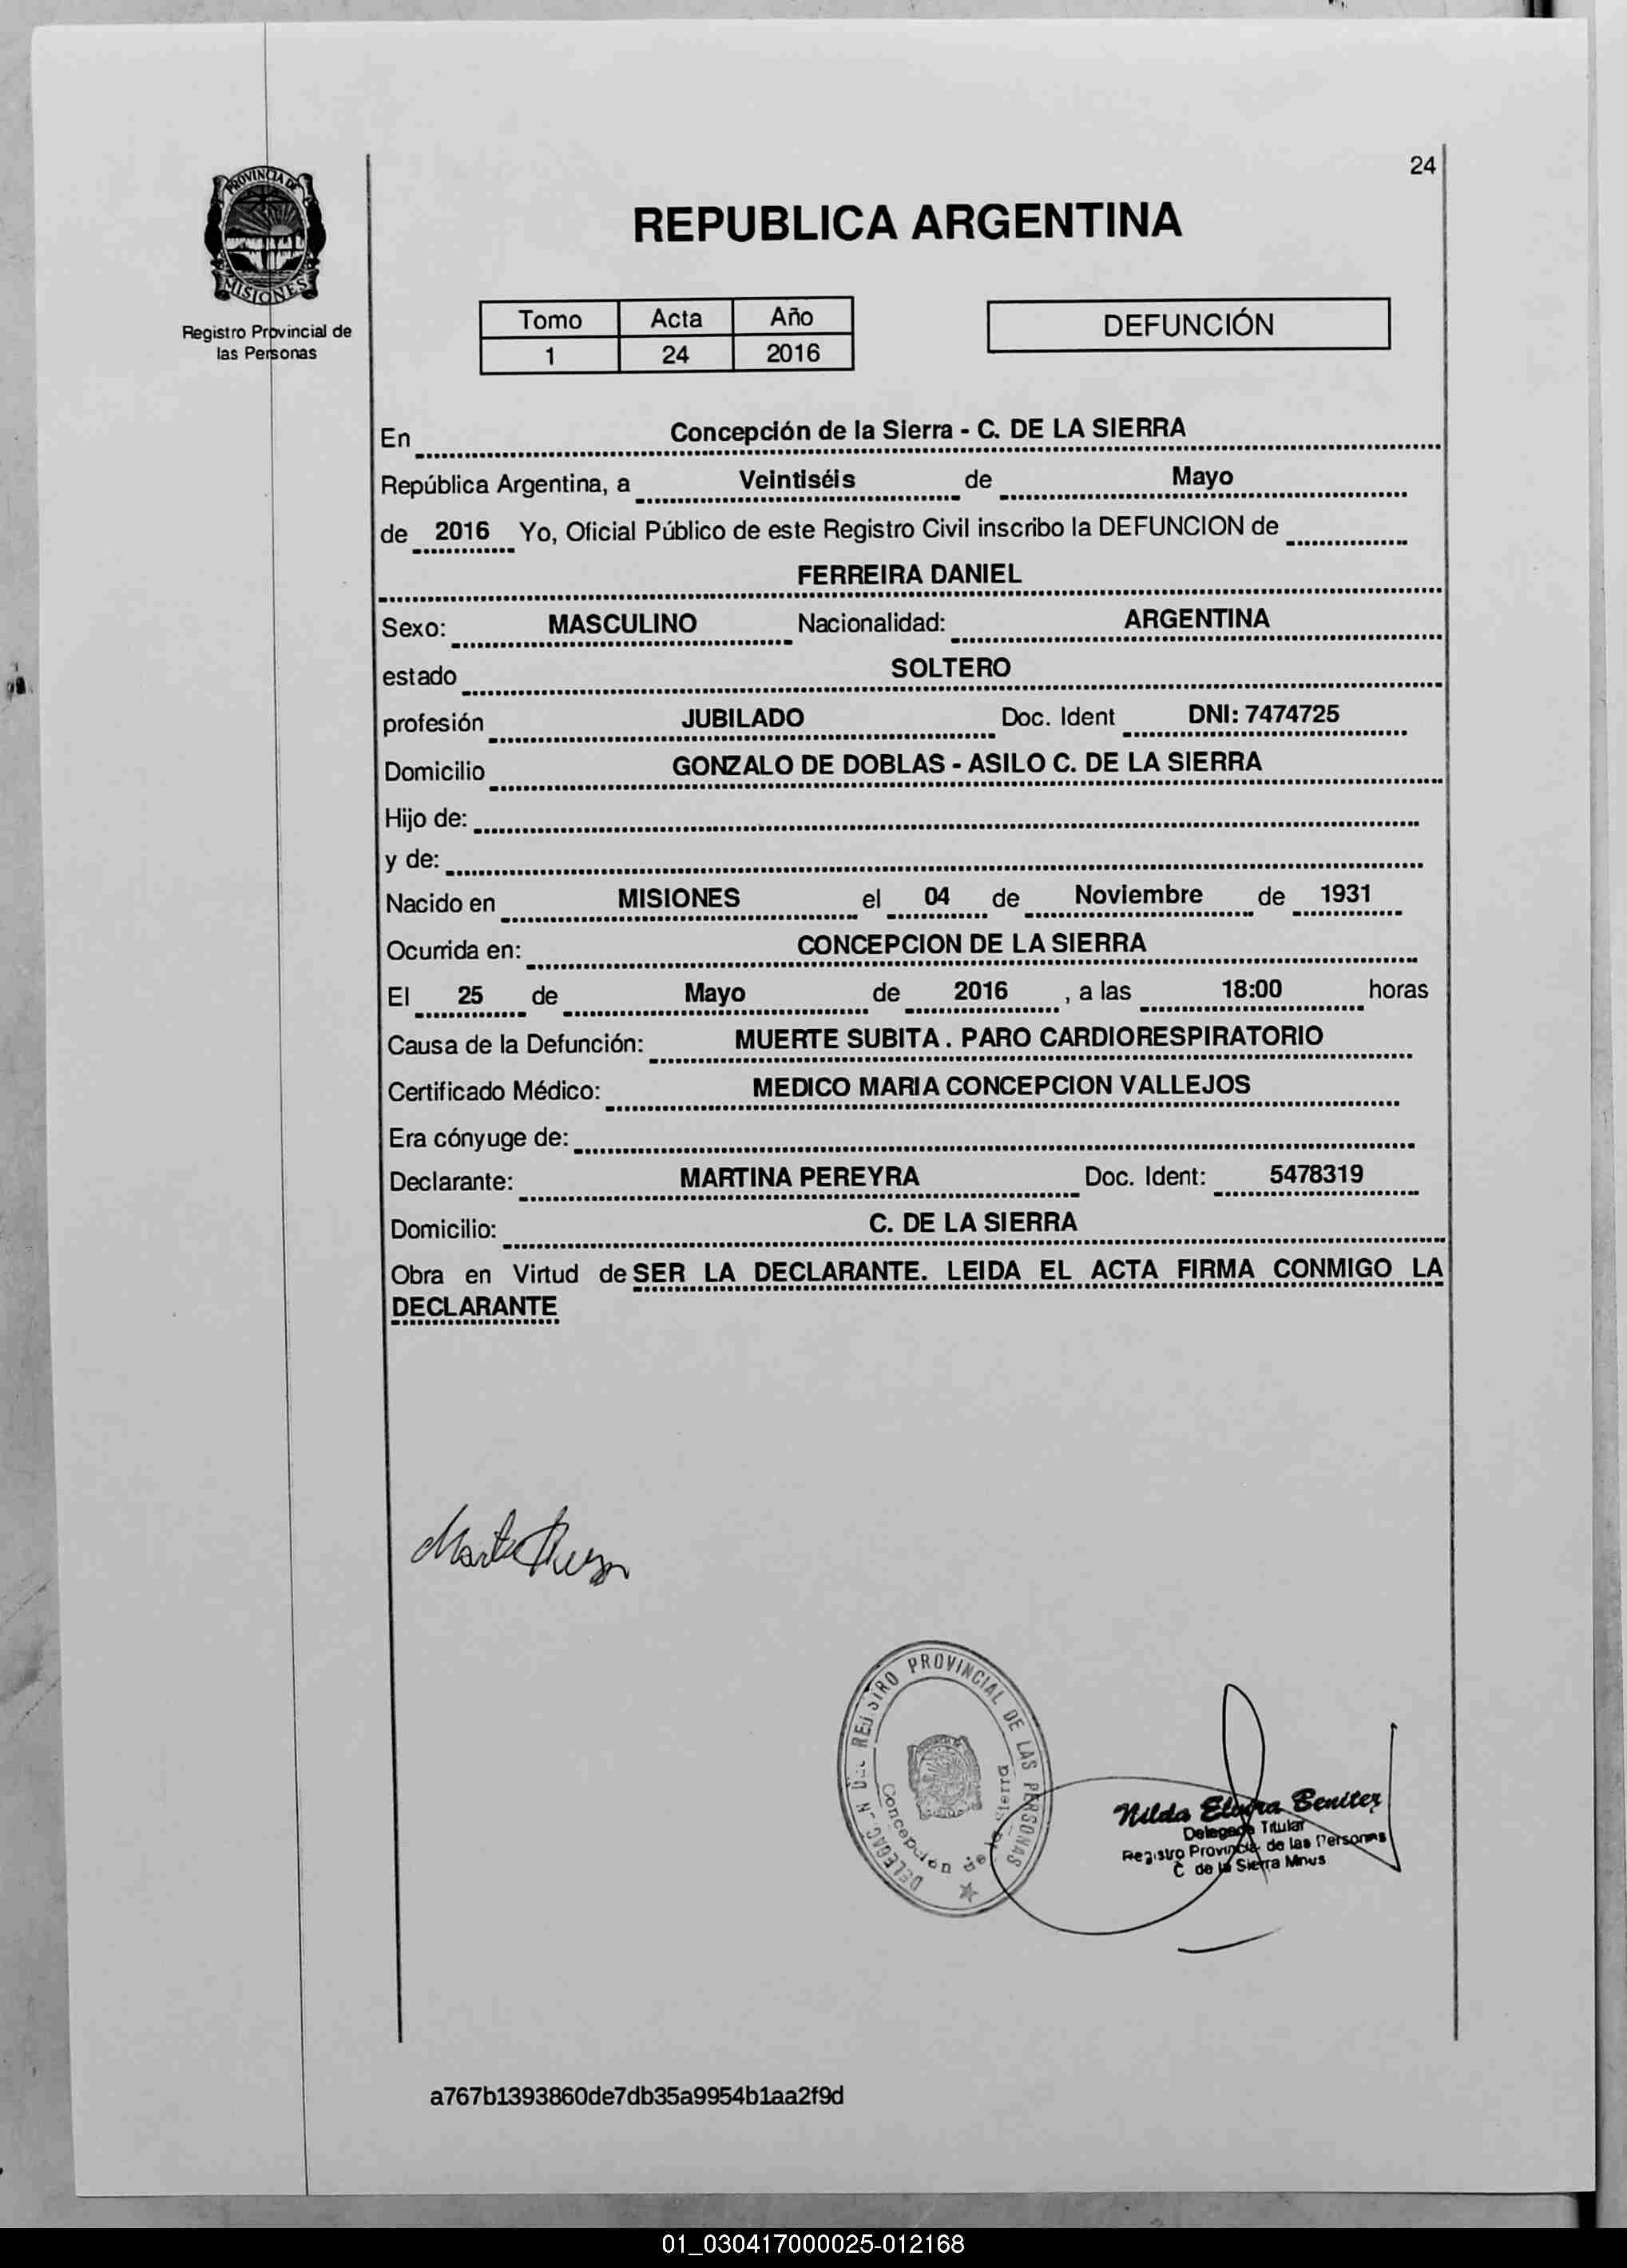 24
PROVINCIA DE
MISIONES
Registro Provincial de
las Personas
REPUBLICA ARGENTINA
Tomo Acta Año
1 24 2016
DEFUNCIÓN
En Concepción de la Sierra - C. DE LA SIERRA
República Argentina, a Veintiséis de Mayo
de 2016 Yo, Oficial Público de este Registro Civil inscribo la DEFUNCION de
FERREIRA DANIEL
Sexo: MASCULINO Nacionalidad: ARGENTINA
estado SOLTERO
profesión JUBILADO Doc. Ident DNI: 7474725
Domicilio GONZALO DE DOBLAS - ASILO C. DE LA SIERRA
Hijo de:
y de:
Nacido en MISIONES el 04 de Noviembre de 1931
Ocurrida en: CONCEPCION DE LA SIERRA
El 25 de Mayo de 2016 , a las 18:00 horas
Causa de la Defunción: MUERTE SUBITA . PARO CARDIORESPIRATORIO
Certificado Médico: MEDICO MARIA CONCEPCION VALLEJOS
Era cónyuge de:
Declarante: MARTINA PEREYRA Doc. Ident: 5478319
Domicilio: C. DE LA SIERRA
Obra en Virtud de SER LA DECLARANTE. LEIDA EL ACTA FIRMA CONMIGO LA
DECLARANTE
REGISTRO PROVINCIAL DE LAS PERSONAS
Concepción de la Sierra
Nilda Elvira Benitez
Delegada Titular
Registro Provincial de las Personas
C de la Sierra Mnes
a767b1393860de7db35a9954b1aa2f9d
01_030417000025-012168